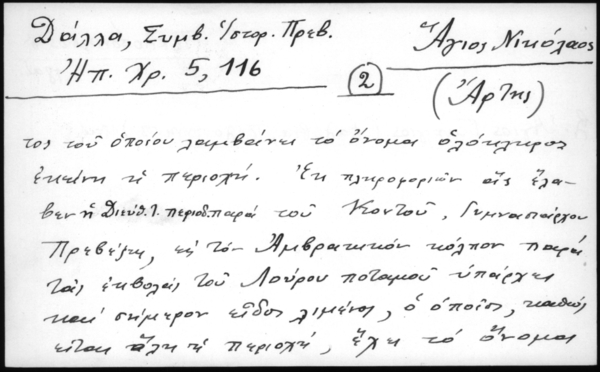 Δάλλα, Συμβ. Ἱστορ. Πρεβ.
Ἅγιος Νικόλαος
Ἠπ. Χρ. 5, 116
(2)
(Ἄρτης)
τος τοῦ ὁποίου λαμβάνει τό ὄνομα ὁλόκληρος
ἐκείνη ἡ περιοχή. Ἐκ πληροφοριῶν ἅς ἔλα-
βεν ἡ Διεύθ. τ. περιοδ. παρά τοῦ Κοντοῦ, Γυμνασιάρχου
Πρεβέζης, εἰς τόν Ἀμβρακικόν κόλπον παρά
τάς ἐκβολάς τοῦ Λούρου ποταμοῦ ὑπάρχει
καί σήμερον εἶδος λιμένος, ὁ ὁποῖος, καθώς
εἶπαν ὅλη ἡ περιοχή, ἔχει τό ὄνομα